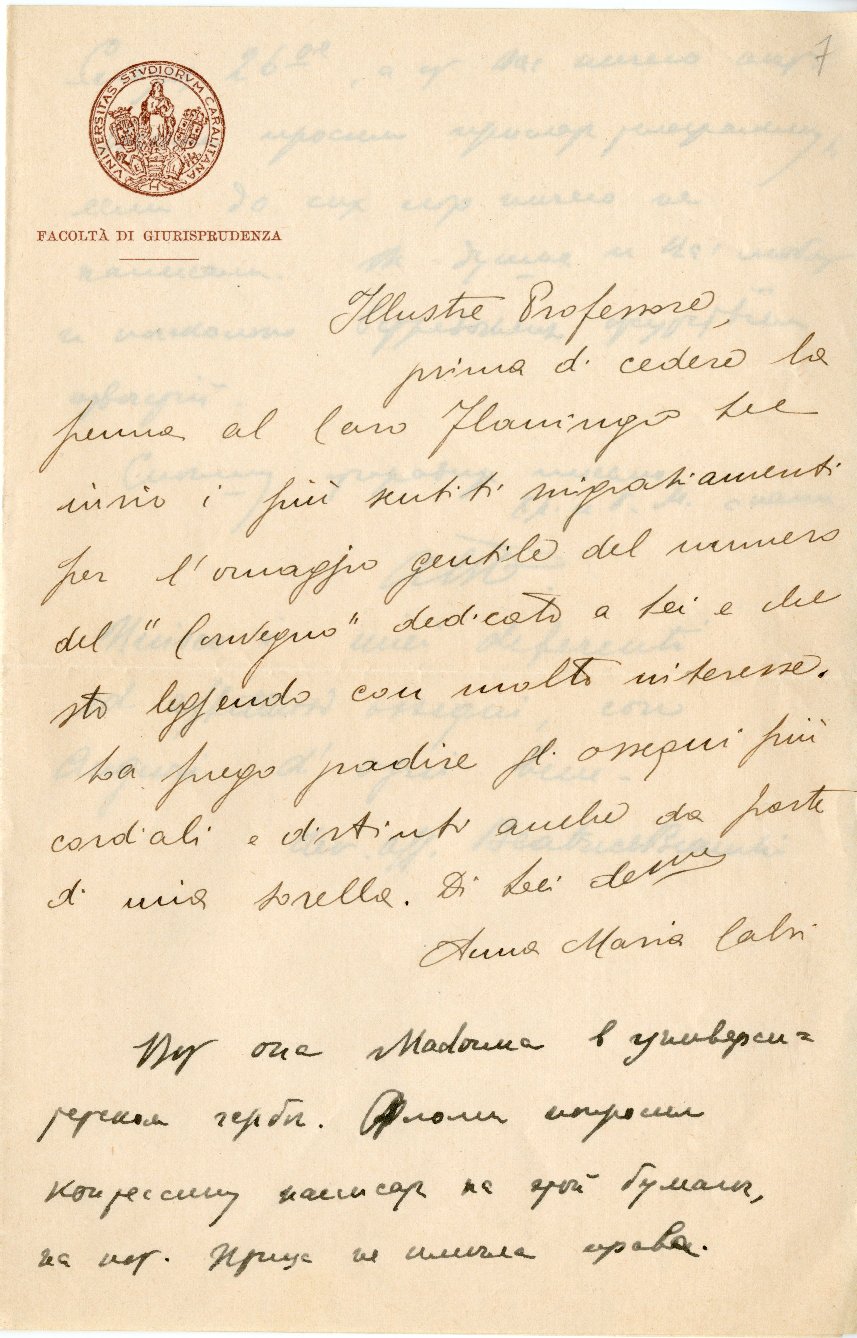 7
UNIVERSITAS STVDIORVM CARALITANA
FACOLTÀ DI GIURISPRUDENZA
Illustre Professore,
prima di cedere la
penna al Caro Flamingo Le
invio i più sentiti ringraziamenti
per l'omaggio gentile del numero
del "Convegno" dedicato a Lei e che
sto leggendo con molto interesse.
La prego gradire gli ossequi più
cordiali e distinti anche da parte
di mia sorella. Di Lei
Anna Maria
Вот она Madonna в универси=
тетском гербе. попросил
написать на этой бумаге,
на вот. не имела права.